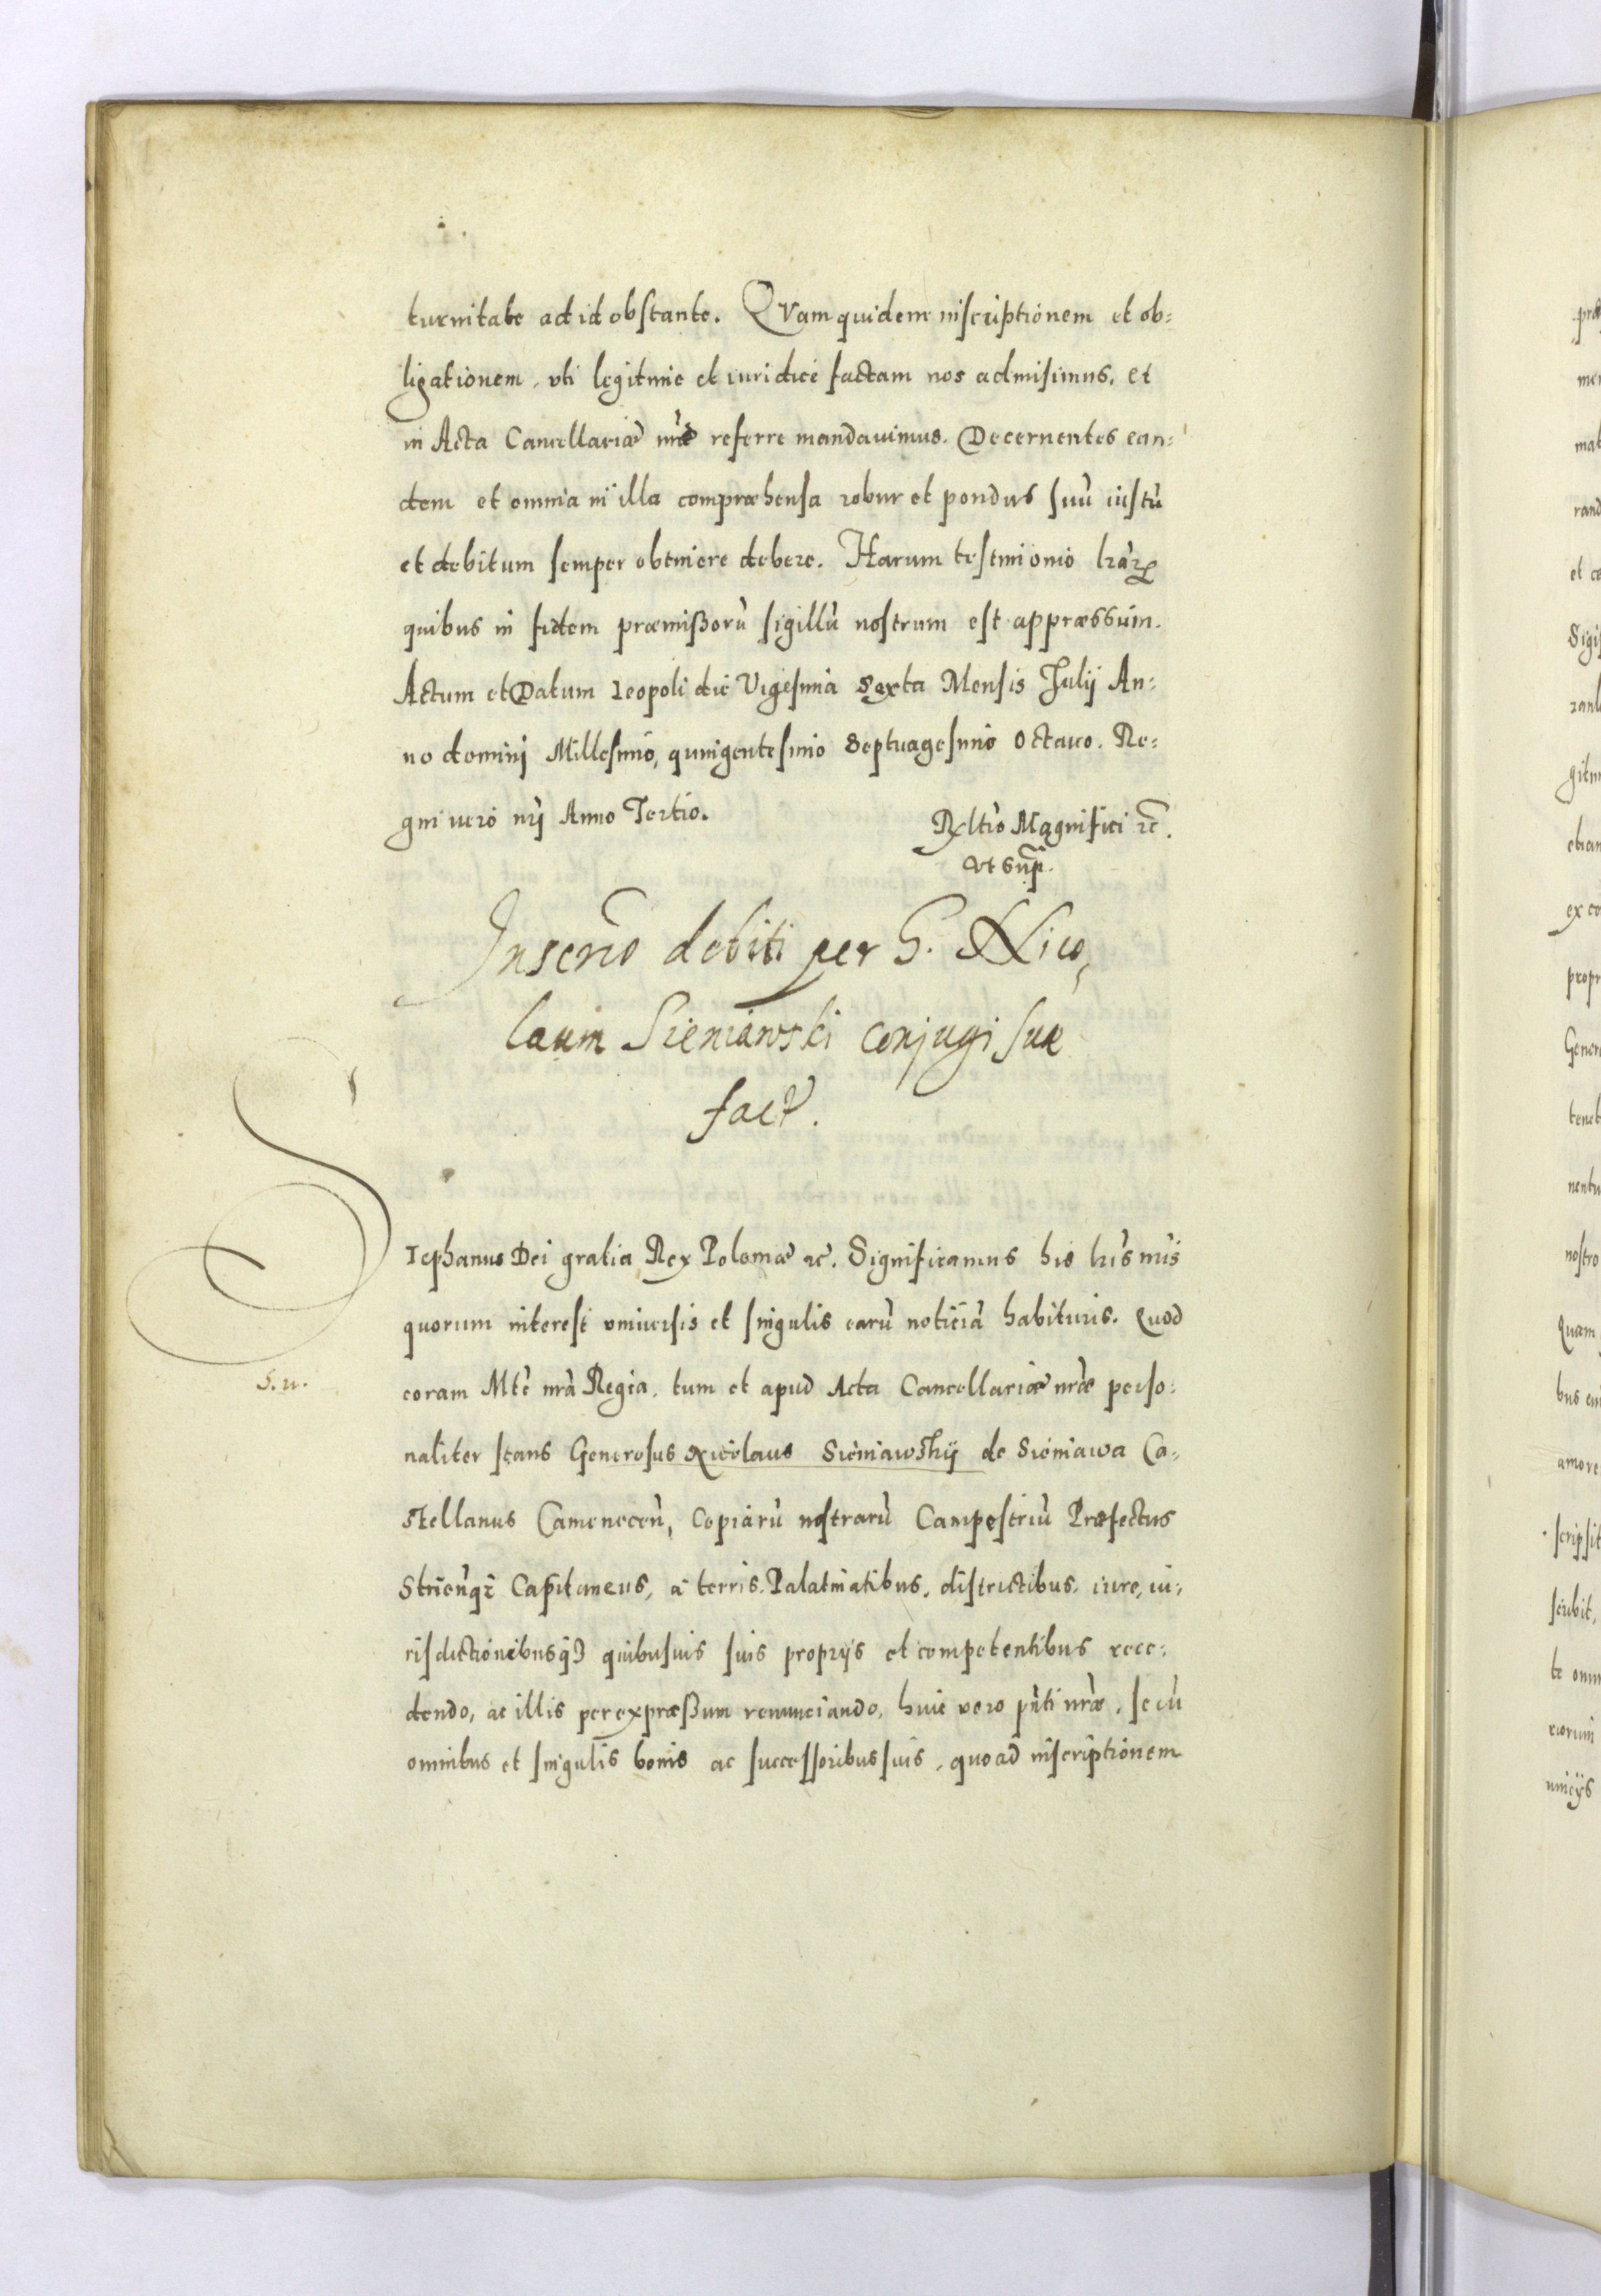 turnitate ad id obstante. Quam quidem inscriptionem et ob:
ligationem, uti legitime et iuridice factam nos admisimus, et
in Acta Cancellariæ nr̃æ referre mandauimus. Decernentes ean:
dem et omnia in illa compræhensa robur et pondus suũ iustũ
et debitum semper obtinere debere. Harum testimonio lrãrꝝ
quibus in fidem præmißorũ sigillũ nostrum est appræssum.
Actum et Datum Leopoli die Vigesima Sexta Mensis Julij An:
no domini Millesimo, quingentesimo Septuagesimo Octauo. Re:
gni vero nri Anno Tertio.
Rltio Magnifici etc.
ut supr.
Inscrio debiti per G. Nico,
laum Sieniawski conjugi suæ
fact.
Stephanus Dei gratia Rex Poloniæ etc. Significamus his lr̃is nr̃is
quorum interest vniuersis et singulis earũ noticiã habituris. Quod
coram Mte nr̃a Regia, tum et apud Acta Cancellariæ nr̃æ perso:
S. n.
naliter stans Generosus Nicolaus Sieniawskij de Sieniawa Ca:
stellanus Camenecen̄, Copiarũ nostrarũ Campestriũ Præfectus
Strien̄qz Capitaneus, à terris, Palatinatibus, districtibus, iure, iu:
risdictionibusqȝ quibusuis suis proprijs et competentibus rece:
dendo, ac illis per expræßum renunciando, huic vero pñti nr̃æ, se cũ
omnibus et singulis bonis ac successoribus suis, quoad inscriptionem